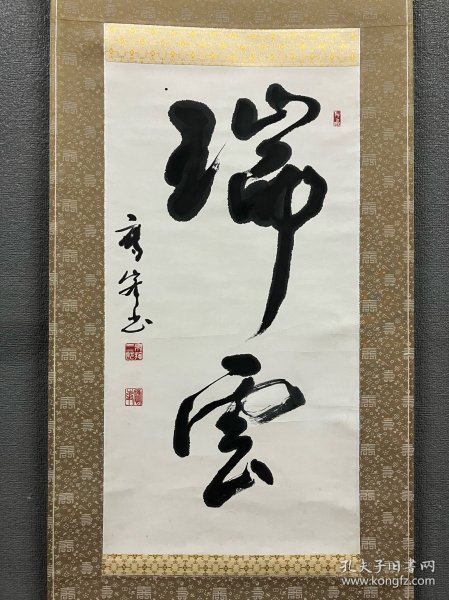 瑞雲
書
孔夫子旧书网
www.kongfz.com